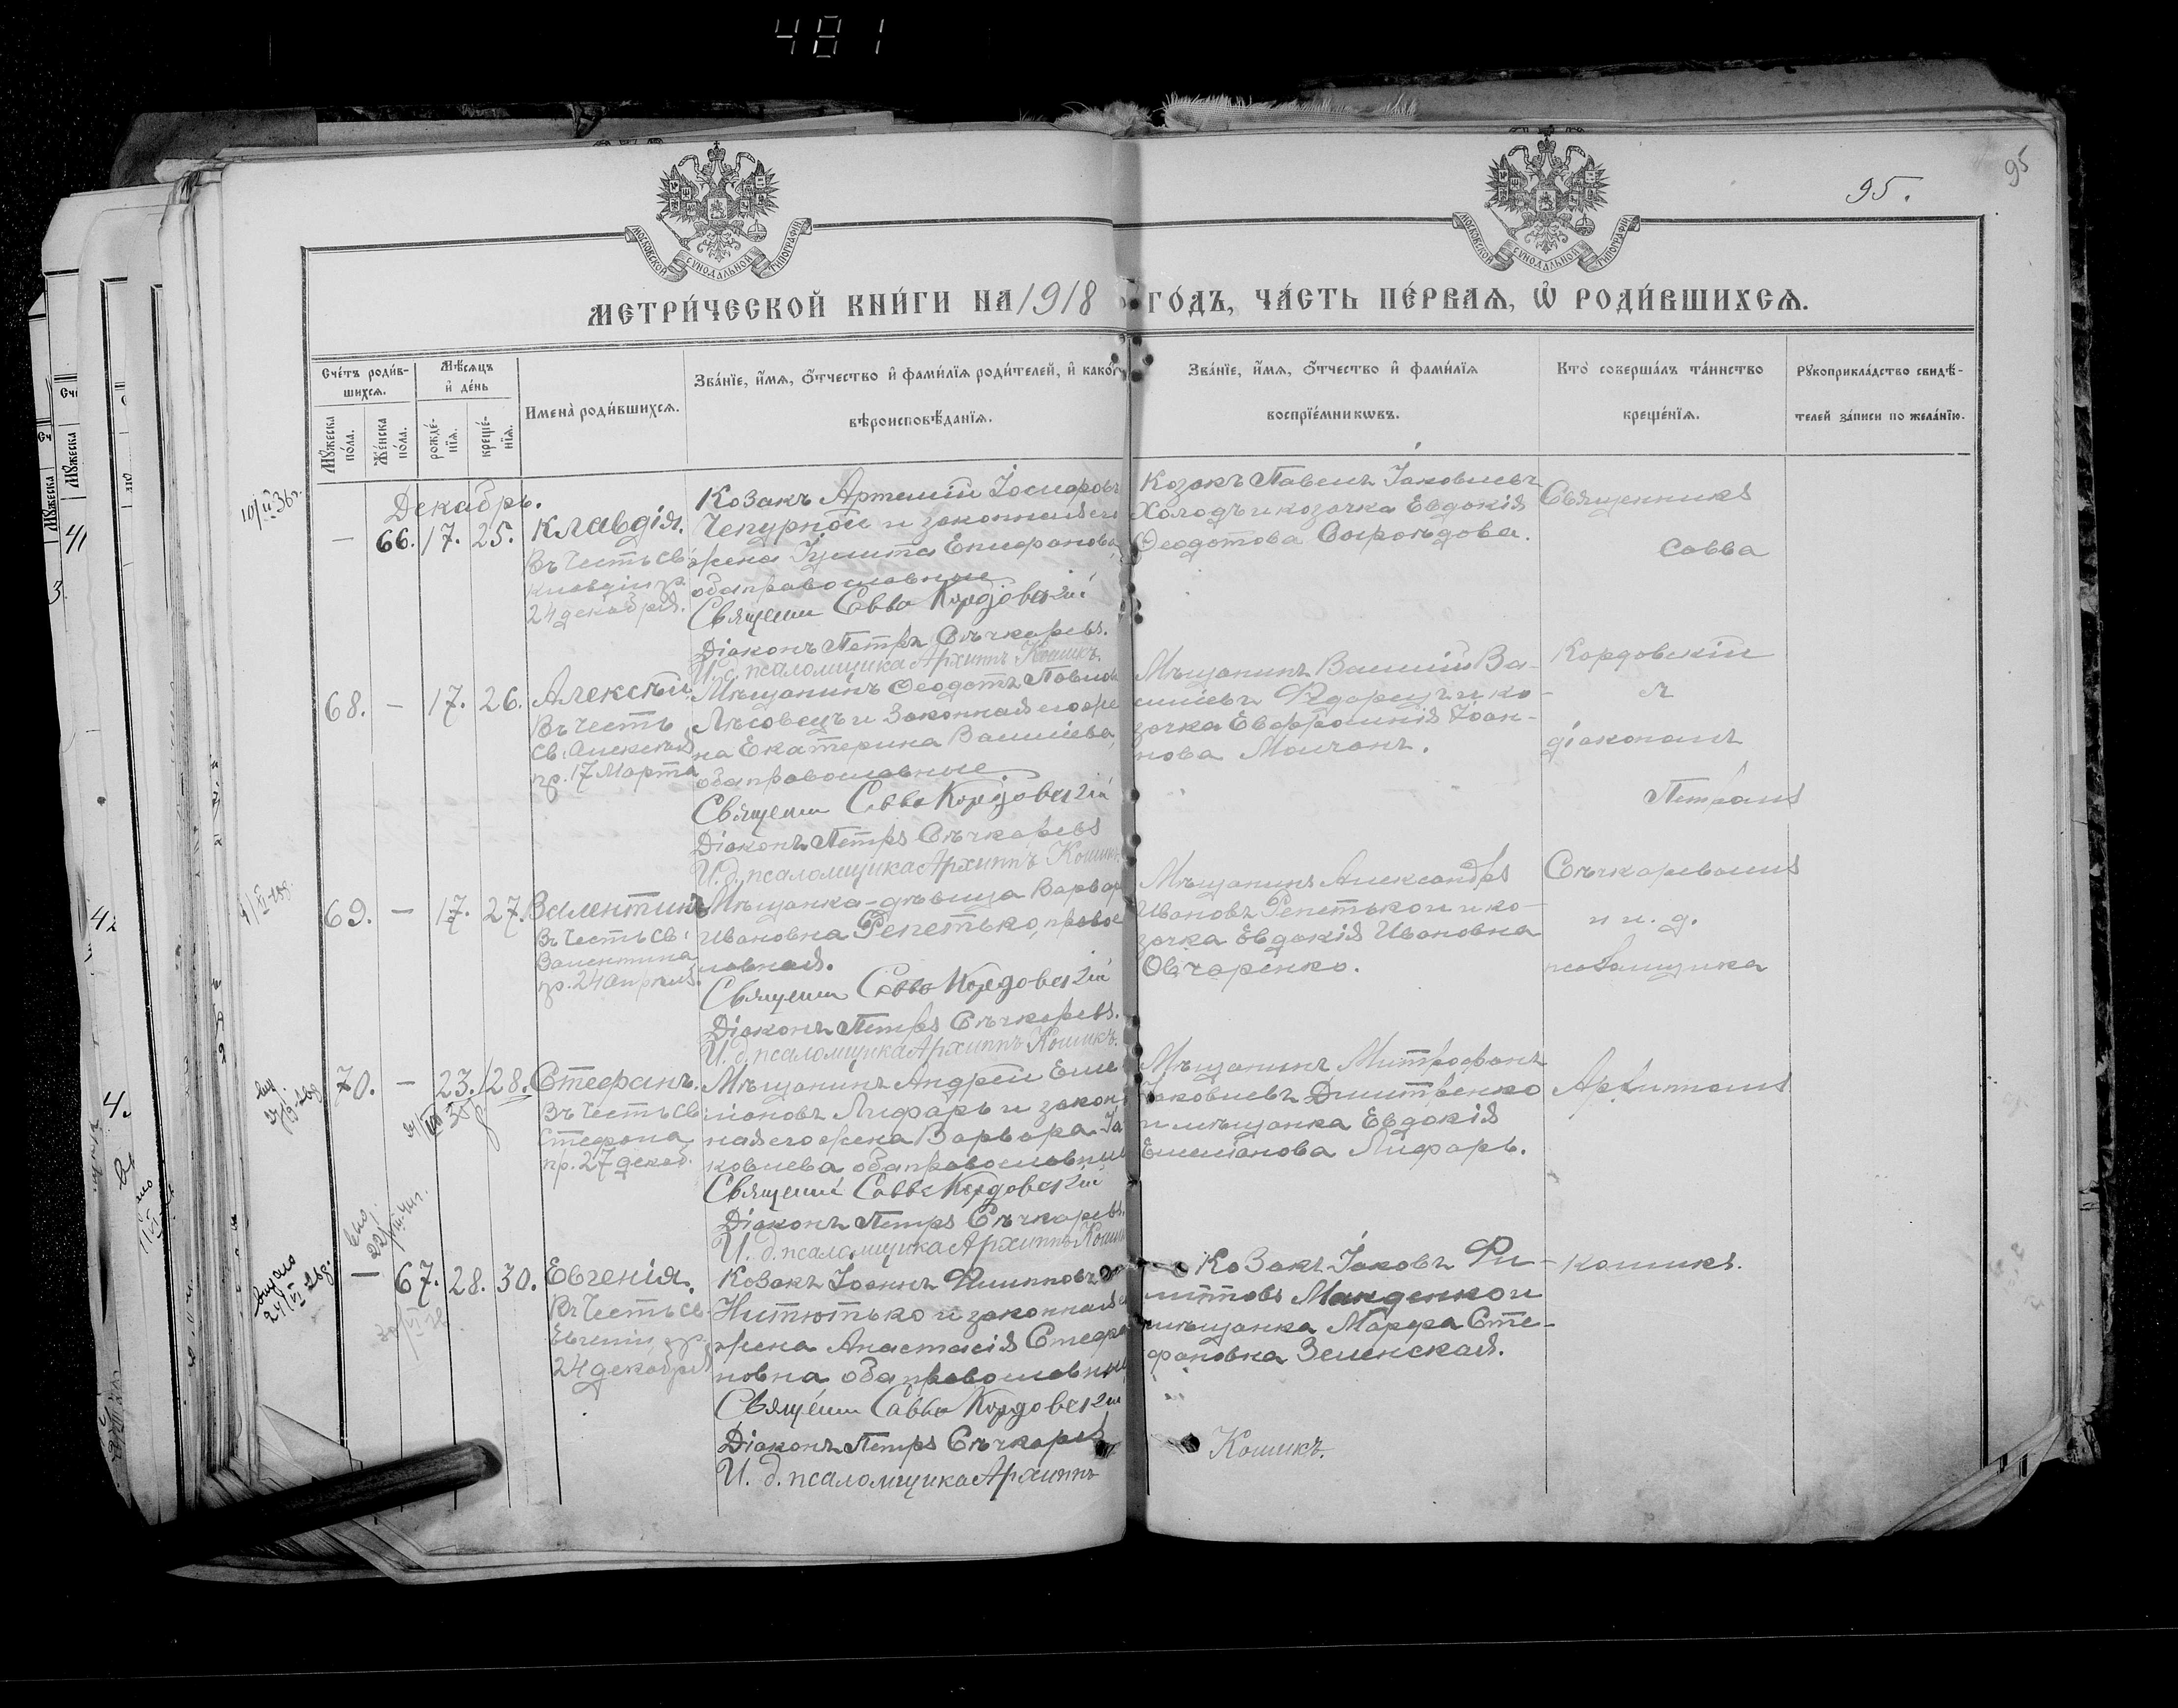 481
95
95.
МОСКОВСКОЙ СУНОДАЛЬНОЙ ТИПОГРАФІИ
МОСКОВСКОЙ СУНОДАЛЬНОЙ ТИПОГРАФІИ
МЕТРИ́ЧЕСКОЙ КНИ́ГИ НА 1918 ГО́ДЪ, ЧА́СТЬ ПЕ́РВАѦ, Ѡ҆ РОДИ́ВШИХСѦ.
Сче́тъ роди́в-
шихсѧ.
Мѣ́сѧцъ
и҆ де́нь
Мꙋ́жеска
по́ла.
Же́нска
по́ла.
рожде́-
нїѧ.
креще́-
нїѧ.
Имена̀ роди́вшихсѧ.
Зва́нїе, и҆́мѧ, ѻ҆́тчество и҆ фами́лїѧ роди́телей, и҆ како́гѡ
вѣроисповѣ́данїѧ.
Зва́нїе, и҆́мѧ, ѻ҆́тчество и҆ фами́лїѧ
воспрїе́мникѡвъ.
Кто̀ соверша́лъ та́инство
креще́нїѧ.
Рꙋкоприкла́дство свидѣ́-
телей за́писи по жела́нїю.
Декабрь.
— 66. 17. 25. Клавдія.
Въ честь св.
Клавдіи пр.
24 декабря.
Козакъ Артемій Іосифовъ
Чепурной и законная его
жена Іулитта Епифанова,
оба православные
Священн Савва Кордовскій
Діаконъ Петръ Сѣчкаревъ.
И. д. псаломщика Архиппъ Кошикъ.
Козакъ Павелъ Іаковлевъ
Холодъ и козачка Евдокія
Ѳеодотова Сыроѣдова.
Священникъ
Савва
Кордовскій
съ
діакономъ
Петромъ
Сѣчкаревымъ
и и. д.
псаломщика
Архипомъ
Кошикъ.
68. — 17. 26. Алексѣй
Въ честь
св. Алексѣя
пр. 17 Марта
Мѣщанинъ Ѳеодотъ Павлов
Лѣсовецъ и законная его же
на Екатерина Василіева,
оба православные
Священн Савва Кордовскій
Діаконъ Петръ Сѣчкаревъ
И. д. псаломщика Архиппъ Кошикъ.
Мѣщанинъ Василій Ва-
силіевъ Федорецъ и ко-
зачка Евфросинія Іоан-
нова Молчанъ.
69. — 17. 27. Валентинъ
Въ честь св.
Валентина
пр. 24 апрѣля.
Мѣщанка-дѣвица Варвар
Ивановна Репетько, правос
лавная.
Священн Савва Кордовскій
Діаконъ Петръ Сѣчкаревъ.
И. д. псаломщика Архиппъ Кошикъ.
Мѣщанинъ Александръ
Ивановъ Репетько и ко-
зачка Евдокія Ивановна
Овчаренко.
70. — 23. 28. Стефанъ.
Въ честь св.
Стефана
пр. 27 декаб.
Мѣщанинъ Андрей Еме
ліановъ Лифарь и закон
ная его жена Варвара Іа
ковлева оба православные
Священн Савва Кордовскій
Діаконъ Петръ Сѣчкаревъ.
И. д. псаломщика Архиппъ Кошикъ
Мѣщанинъ Митрофанъ
Іаковлевъ Дмитренко
и мѣщанка Евдокія
Емеліанова Лифарь.
— 67. 28. 30. Евгенія.
Въ честь св.
Евгеніи пр.
24 декабря
Козакъ Іоаннъ Филипповъ
Нитютько и законная
жена Анастасія Стефа
новна оба православные
Священн Савва Кордовскій
Діаконъ Петръ Сѣчкаревъ
И. д. псаломщика Архиппъ
Кошикъ.
Козакъ Іаковъ Фи-
липповъ Макденко и
мѣщанка Марфа Сте-
фановна Зеленская.